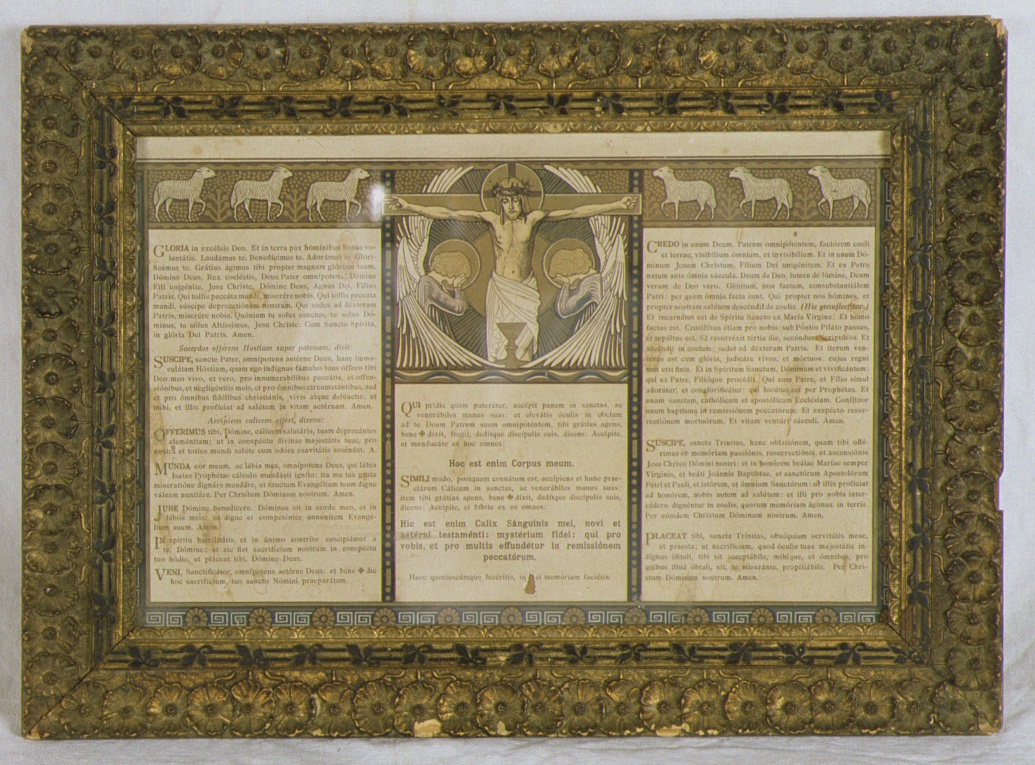 GLORIA in excélsis Deo. Et in terra pax homínibus bonae vo-
luntátis. Laudámus te. Benedícimus te. Adorámus te. Glori-
ficámus te. Grátias ágimus tibi propter magnam glóriam tuam.
Dómine Deus, Rex coeléstis, Deus Pater omnípotens. Dómine
Fili unigénite, Jesu Christe. Dómine Deus, Agnus Dei, Fílius
Patris. Qui tollis peccáta mundi, miserére nobis. Qui tollis peccáta
mundi, súscipe deprecatiónem nostram. Qui sedes ad déxteram
Patris, miserére nobis. Quóniam tu solus sanctus, tu solus Dó-
minus, tu solus Altíssimus, Jesu Christe: Cum Sancto Spíritu,
in glória Dei Patris. Amen.
Sacerdos offerens Hostiam super patenam, dicit:
SUSCIPE, sancte Pater, omnípotens aetérne Deus, hanc imma-
culátam Hóstiam, quam ego indígnus fámulus tuus óffero tibi
Deo meo vivo, et vero, pro innumerabílibus peccátis, et offen-
siónibus, et negligéntiis meis, et pro ómnibus circumstántibus, sed
et pro ómnibus fidélibus christiánis, vivis atque defúnctis: ut
mihi, et illis profíciat ad salútem in vitam aetérnam. Amen.
Accipiens calicem offert, dicens:
OFFERIMUS tibi, Dómine, cálicem salutáris, tuam deprecántes
cleméntiam: ut in conspéctu divínae majestátis tuae, pro
nostra et totíus mundi salúte cum odóre suavitátis ascéndat. A.
MUNDA cor meum, ac lábia mea, omnípotens Deus, qui lábia
Isaíae Prophétae cálculo mundásti igníto: ita me tua grata
miseratióne dignáre mundáre, ut sanctum Evangélium tuum digne
váleam nuntiáre. Per Christum Dóminum nostrum. Amen.
JUBE Dómine benedícere. Dóminus sit in corde meo, et in
lábiis meis: ut digne et competénter annúntiem Evangé-
lium suum. Amen.
IN spíritu humilitátis, et in ánimo contríto suscipiámur a
te, Dómine: et sic fiat sacrifícium nostrum in conspéctu
tuo hódie, ut pláceat tibi, Dómine Deus.
VENI, Sanctificátor, omnípotens aetérne Deus: et béne ✠ dic
hoc sacrifícium, tuo sancto Nómini praeparátum.
QUI prídie quam paterétur, accépit panem in sanctas, ac
venerábiles manus suas: et elevátis óculis in coelum
ad te Deum Patrem suum omnipoténtem, tibi grátias agens,
bene ✠ díxit, fregit, dedítque discípulis suis, dicens: Accípite,
et manducáte ex hoc omnes:
Hoc est enim Corpus meum.
SIMILI modo, postquam coenátum est, accípiens et hunc prae-
clárum Cálicem in sanctas, ac venerábiles manus suas:
item tibi grátias agens, bene ✠ díxit, dedítque discípulis suis,
dicens: Accípite, et bíbite ex eo omnes:
Hic est enim Calix Sánguinis mei, novi et
aetérni testaménti: mystérium fídei: qui pro
vobis, et pro multis effundétur in remissiónem
peccatórum.
Haec quotiescúmque fecéritis, in mei memóriam faciétis.
CREDO in unum Deum, Patrem omnipoténtem, factórem coeli
et terrae, visibílium ómnium, et invisibílium. Et in unum Dó-
minum Jesum Christum, Fílium Dei unigénitum. Et ex Patre
natum ante ómnia sáecula. Deum de Deo, lumen de lúmine, Deum
verum de Deo vero. Génitum, non factum, consubstantiálem
Patri: per quem ómnia facta sunt. Qui propter nos hómines, et
propter nostram salútem descéndit de coelis. (Hic genuflectitur.)
Et incarnátus est de Spíritu Sancto ex María Vírgine: Et homo
factus est. Crucifíxus étiam pro nobis: sub Póntio Piláto passus,
et sepúltus est. Et resurréxit tértia die, secúndum Scriptúras. Et
ascéndit in coelum: sedet ad déxteram Patris. Et íterum ven-
túrus est cum glória, judicáre vivos, et mórtuos: cujus regni
non erit finis. Et in Spíritum Sanctum, Dóminum et vivificántem:
qui ex Patre, Filióque procédit. Qui cum Patre, et Fílio simul
adorátur, et conglorificátur: qui locútus est per Prophétas. Et
unam sanctam, cathólicam et apostólicam Ecclésiam. Confíteor
unum baptísma in remissiónem peccatórum. Et exspécto resur-
rectiónem mortuórum. Et vitam ventúri sáeculi. Amen.
SUSCIPE, sancta Trínitas, hanc oblatiónem, quam tibi offé-
rimus ob memóriam passiónis, resurrectiónis, et ascensiónis
Jesu Christi Dómini nostri: et in honórem beátae Maríae semper
Vírginis, et beáti Joánnis Baptístae, et sanctórum Apostolórum
Petri et Pauli, et istórum, et ómnium Sanctórum: ut illis profíciat
ad honórem, nobis autem ad salútem: et illi pro nobis inter-
cédere dignéntur in coelis, quorum memóriam ágimus in terris.
Per eúmdem Christum Dóminum nostrum. Amen.
PLACEAT tibi, sancta Trínitas, obséquium servitútis meae,
et praesta: ut sacrifícium, quod óculis tuae majestátis in-
dígnus óbtuli, tibi sit acceptábile, mihíque, et ómnibus, pro
quibus illud óbtuli, sit, te miseránte, propitiábile. Per Chri-
stum Dóminum nostrum. Amen.